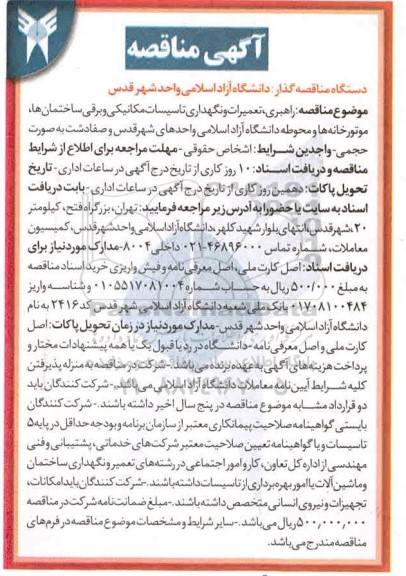 آگهی مناقصه
دستگاه مناقصه گذار: دانشگاه آزاد اسلامی واحد شهر قدس
موضوع مناقصه: راهبری، تعمیرات و نگهداری تاسیسات مکانیکی و برقی ساختمان ها،
موتورخانه ها و محوطه دانشگاه آزاد اسلامی واحدهای شهرقدس و صفادشت به صورت
حجمی - واجدین شرایط: اشخاص حقوقی - مهلت مراجعه برای اطلاع از شرایط
مناقصه و دریافت اسناد: ۱۰ روز کاری از تاریخ درج آگهی در ساعات اداری - تاریخ
تحویل پاکات: دهمین روز کاری از تاریخ درج آگهی در ساعات اداری - بابت دریافت
اسناد به سایت یا حضورا به آدرس زیر مراجعه فرمایید: تهران، بزرگراه فتح، کیلومتر
۲۰، شهرقدس، انتهای بلوار شهید کلهر، دانشگاه آزاد اسلامی واحد شهرقدس، کمیسیون
معاملات، شماره تماس ۴۶۸۹۶۰۰۰-۰۲۱ داخلی ۸۰۰۴- مدارک مورد نیاز برای
دریافت اسناد: اصل کارت ملی، اصل معرفی نامه و فیش واریزی خرید اسناد مناقصه
به مبلغ ۵۰۰/۰۰۰ ریال به حساب شماره ۰۱۰۵۵۱۷۰۸۱۰۰۴ و شناسه واریز
۰۱۷۰۸۱۰۰۴۸۴ بانک ملی شعبه دانشگاه آزاد اسلامی شهر قدس کد ۲۴۱۶ به نام
دانشگاه آزاد اسلامی واحد شهر قدس - مدارک مورد نیاز در زمان تحویل پاکات: اصل
کارت ملی و اصل معرفی نامه - دانشگاه در رد یا قبول یک یا همه پیشنهادات مختار و
پرداخت هزینه های آگهی به عهده برنده می باشد. - شرکت در مناقصه به منزله پذیرفتن
کلیه شرایط آیین نامه معاملات دانشگاه آزاد اسلامی می باشد. - شرکت کنندگان باید
دو قرارداد مشابه موضوع مناقصه در پنج سال اخیر داشته باشند. - شرکت کنندگان
بایستی گواهینامه صلاحیت پیمانکاری معتبر از سازمان برنامه و بودجه حداقل در پایه ۵
تاسیسات و یا گواهینامه تعیین صلاحیت معتبر شرکت های خدماتی، پشتیبانی و فنی
مهندسی از اداره کل تعاون، کار و امور اجتماعی در رشته های تعمیر و نگهداری ساختمان
و ماشین آلات یا امور بهره برداری از تاسیسات داشته باشند. - شرکت کنندگان باید امکانات،
تجهیزات و نیروی انسانی متخصص داشته باشند. - مبلغ ضمانت نامه شرکت در مناقصه
۵۰۰,۰۰۰,۰۰۰ ریال می باشد. - سایر شرایط و مشخصات موضوع مناقصه در فرم های
مناقصه مندرج می باشد.